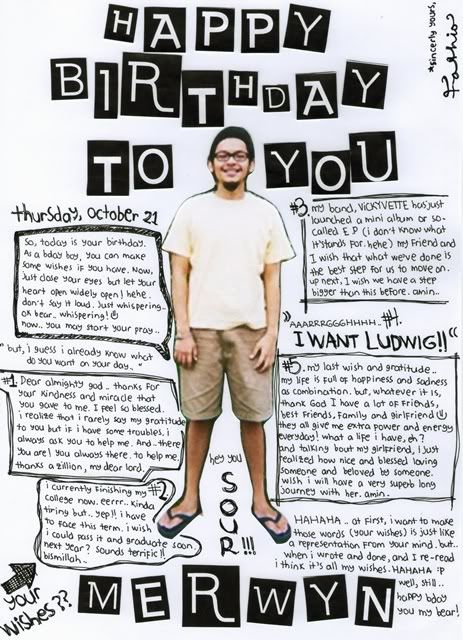 HAPPY
BIRTHDAY
TO YOU
*sincerly yours,
thursday, october 21
So, today is your birthday.
As a bday boy, you can make
some wishes if you have. Now,
Just close your eyes but let your
heart open widely open! hehe.
don't say it loud. Just whispering..
ok bear.. whispering!
now.. you may start your pray..
"but, i guess i already know what
do you want on your day.."
#1. Dear almighty god.. thanks for
your kindness and miracle that
you gave to me. I feel so blessed.
i realize that i rarely say my gratitude
to you but if i have some troubles, i
always ask you to help me. And..there
you are! you always there. to help me.
thanks a zillion, my dear lord.
#2
i currently finishing my
college now. eerrr.. kinda
tiring but.. yep!! i have
to face this term. i wish
i could pass it and graduate soon.
next year? Sounds terrific!!
bismillah..
#3. my band, VICKYVETTE has just
launched a mini album or so-
called E.P (i don't know what
it stands for. hehe) my friend and
I wish that what we've done is
the best step for us to move on.
up next, I wish we have a step
bigger than this before. amin..
"AAARRRGGGHHHH.. #4.
I WANT LUDWIG!!"
#5. my last wish and gratitude..
my life is full of happiness and sadness
as combination. but, whatever it is,
thank God I have a lot of friends,
best friends, family and girlfriend
they all give me extra power and energy
everyday! what a life i have, eh?
and talking bout my girlfriend, I just
realized how nice and blessed loving
someone and beloved by someone.
wish i will have a very superb long
journey with her. amin.
hey you
SOUR!!!
HAHAHA.. at first, i want to make
those words (your wishes) is just like
a representation from your mind. but..
when i wrote and done, and I re-read
i think it's all my wishes. HAHAHA :p
well, still..
happy bday
you my bear!
your
wishes??
MERWYN